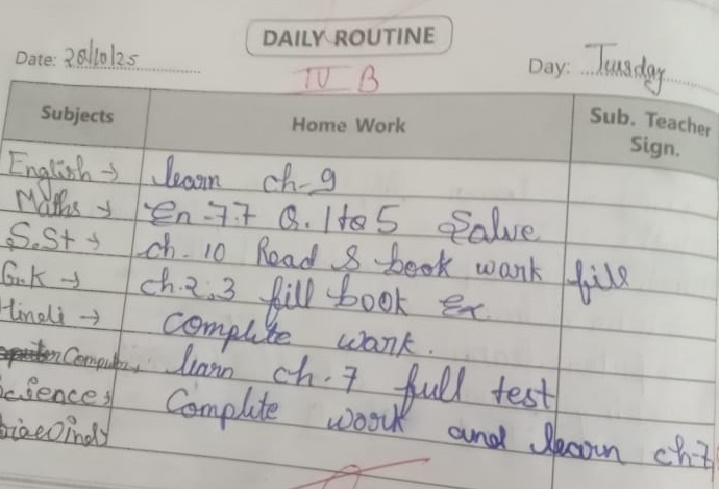 DAILY ROUTINE
Date: 28/10/25
IV B
Day: Teusday
Subjects Home Work Sub. Teacher Sign.
English → learn ch-9
Maths → En-7.7 Q. 1 to 5 Salve
S.St → ch-10 Read & book wark fill
G.K → ch.2,3 fill book Ex.
Hindi → complete wark.
Computer learn ch.7 full test
Complete work and learn ch-7